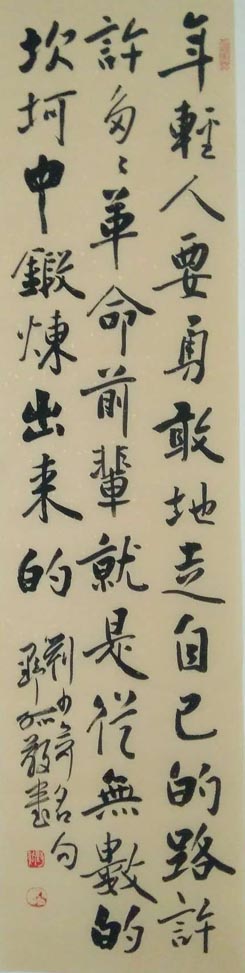 年輕人要勇敢地走自己的路許
許多多革命前輩就是從無數的
坎坷中鍛煉出来的
劉少奇名句
敬書